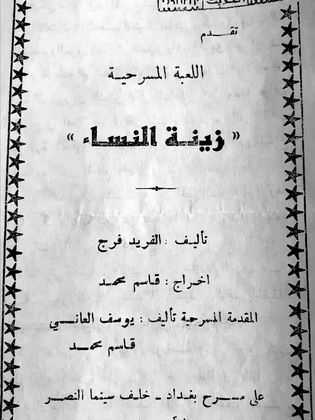 تقدم
اللعبة المسرحية
« زينة النساء »
تأليف : الفريد فرج
اخراج : قاسم محمد
المقدمة المسرحية تأليف : يوسف العاني
قاسم محمد
على مسرح بغداد - خلف سينما النصر